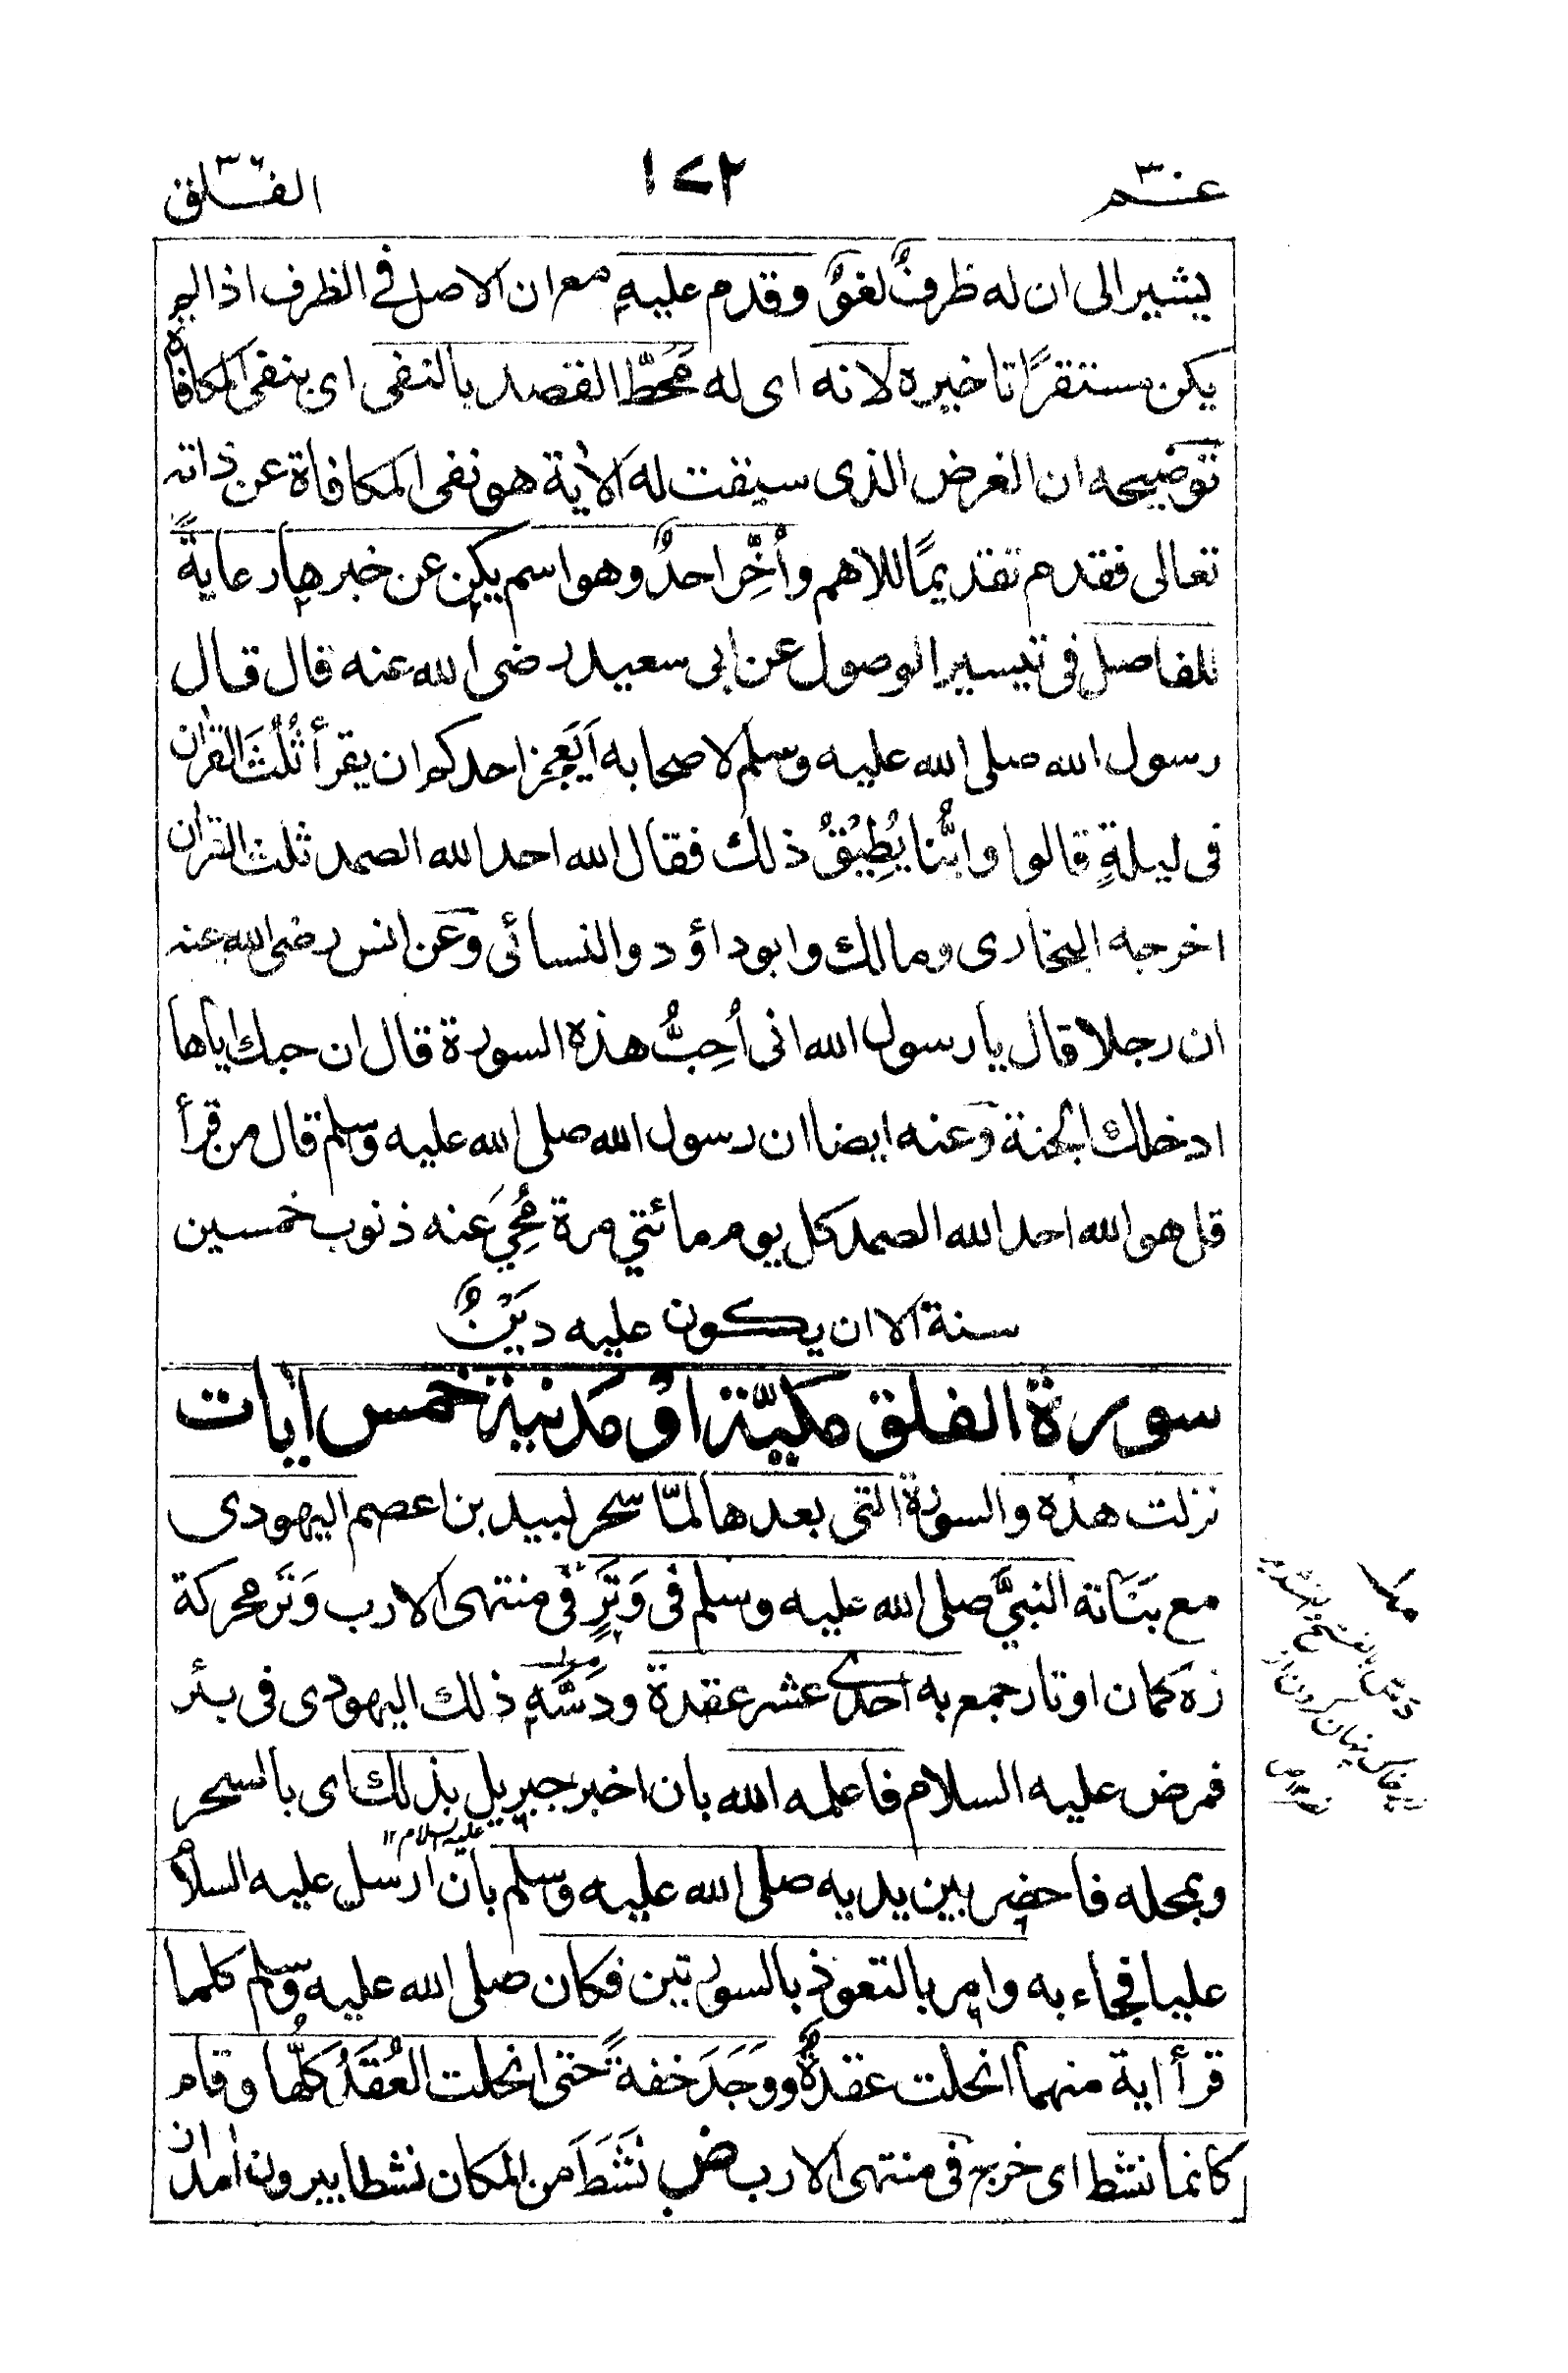 عـم ٣٠
١٧٢
الفـلق
يشير الى ان له ظرفٌ لغوٌ وقدم عليه مع ان الاصل فى الظرف اذا لم
يكن مستقرًا تاخيره لانه اى له مَحَطّ القصد بالنفى اى بنفى المكافأة
توضيحه ان الغرض الذى سيقت له الأية هو نفى المكافاة عن ذاته
تعالى فقدم تقديمًا للاهم وأُخِّر احدٌ وهو اسم يكن عن خبرها رعايةً
للفاصل فى تيسير الوصول عن ابى سعيد رضى الله عنه قال قال
رسول الله صلى الله عليه وسلم لاصحابه اَيَعجز احدكم ان يقرأ ثُلُثَ القران
فى ليلةٍ قالوا وايُّنا يُطِيْقُ ذلك فقال الله احد الله الصمد ثلث القران
اخرجه البخارى ومالك وابوداؤد والنسائى وعن انس رضى الله عنه
ان رجلا قال يا رسول الله انى اُحِبُّ هذه السورة قال ان حبك اياها
ادخلك الجنة وعنه ايضا ان رسول الله صلى الله عليه وسلم قال من قرأ
قل هو الله احد الله الصمد كل يوم مائتي مرة مُحِيَ عنه ذنوب خمسين
سنة الا ان يكون عليه دَيْنٌ
سورة الفلق مكيّة او مدنية خمس ايات
نزلت هذه والسورة التى بعدها لمّا سحر لبيد بن اعصم اليهودى
مع بَنَاته النبيَّ صلى الله عليه وسلم فى وَتَرٍ فى منتهى الارب وَتَر محركة
زه كمان اوتار جمع به احدى عشر عقدة ودَسَّه ذلك اليهودى فى بئر
فمرض عليه السلام فاعلمه الله بان اخبر جبريل بذلك اى بالسحر
عليه السلام ١٢
وبمحله فاحضر بين يديه صلى الله عليه وسلم بان ارسل عليه السلام
عليا فجاء به وامر بالتعوذ بالسورتين فكان صلى الله عليه وسلم كلما
قرأ اية منهما انحلت عقدةٌ ووَجَدَ خفةً حتى انحلت العُقَدُ كلُّها وقام
كانما نشط اى خرج فى منتهى الارب ض نَشَطَ من المكان نشطا بيرون امد ازان